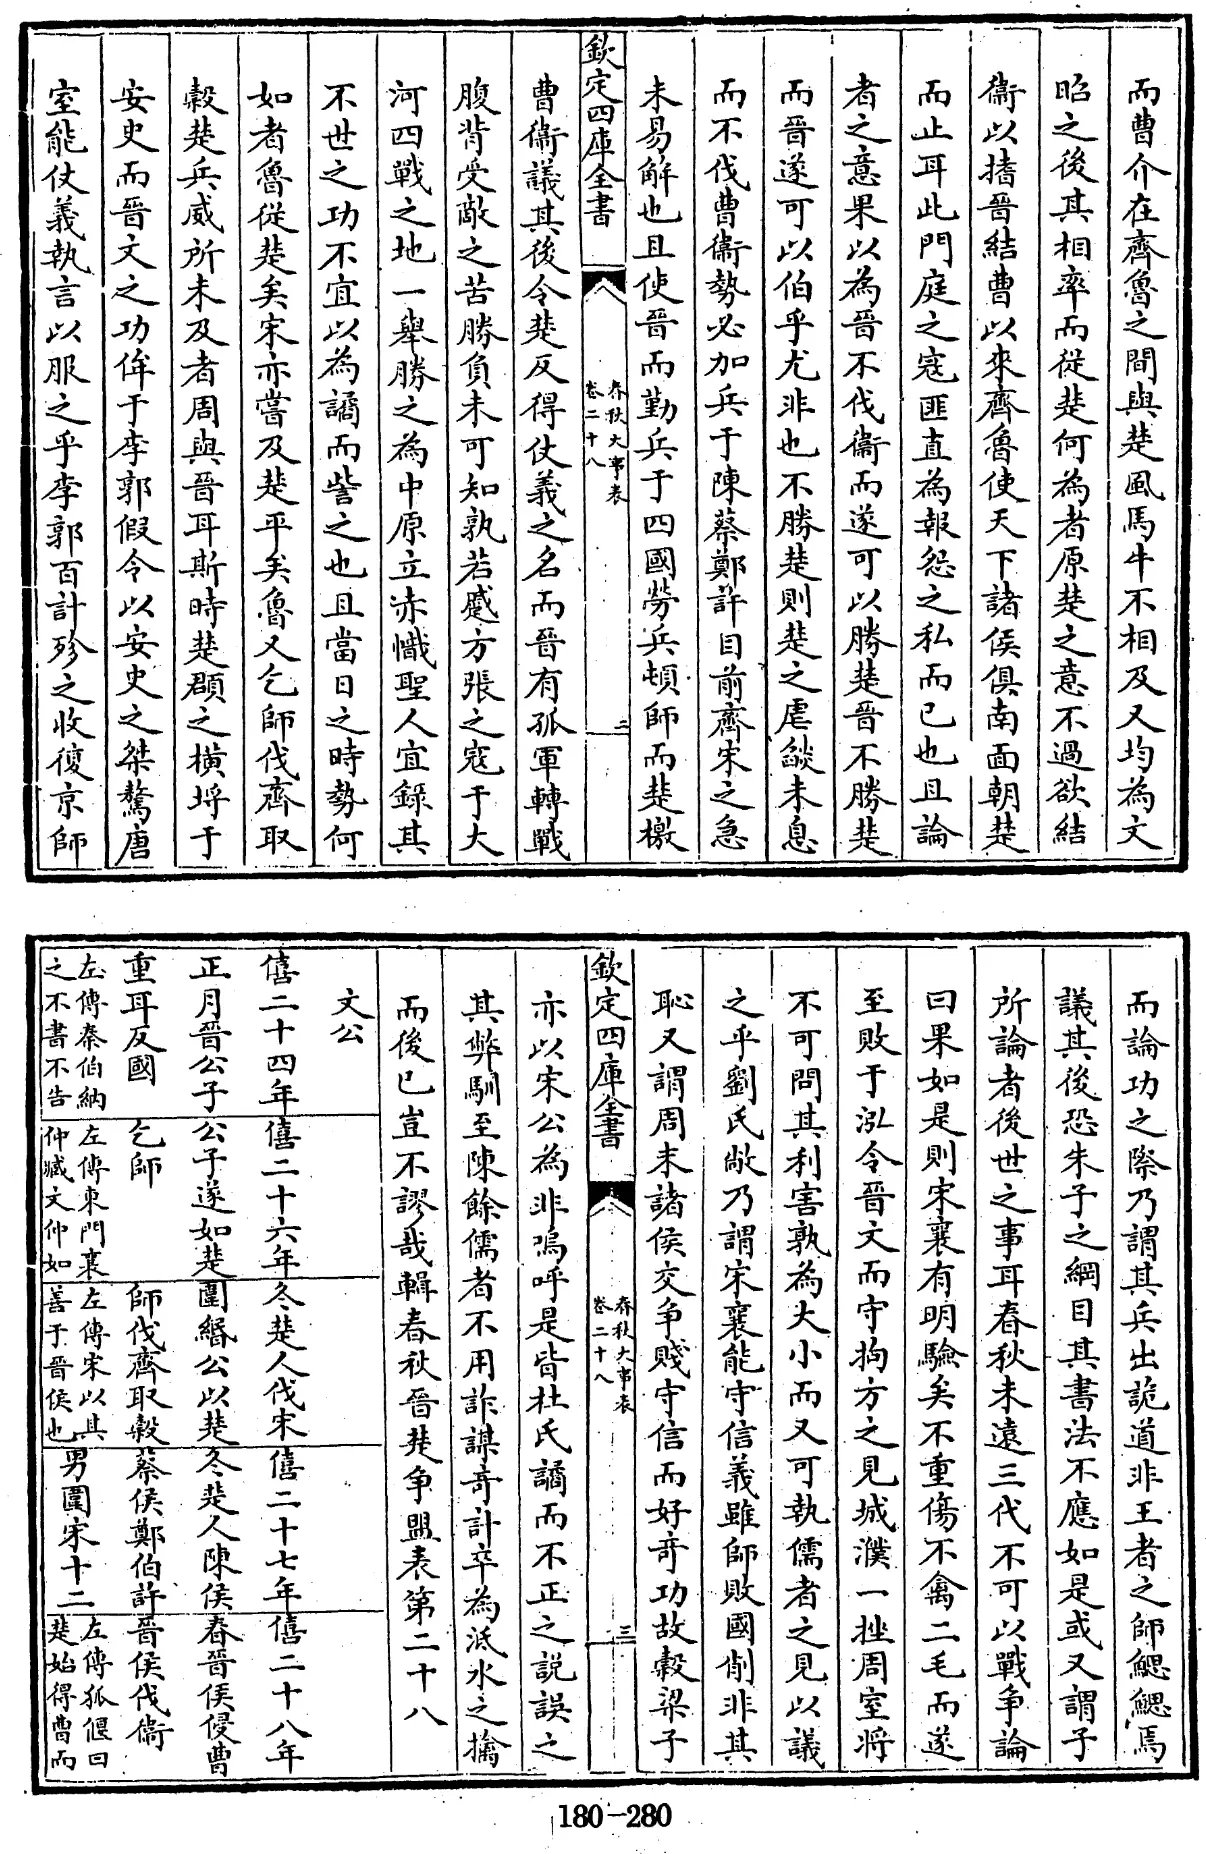 而曹介在齊魯之間與楚風馬牛不相及又均為文
昭之後其相率而從楚何為者原楚之意不過欲結
衞以撎晉結曹以來齊魯使天下諸侯俱南面朝楚
而止耳此門庭之寇匪直為報怨之私而已也且論
者之意果以為晉不伐衞而遂可以勝楚晉不勝楚
而晉遂可以伯乎尤非也不勝楚則楚之虐燄未息
而不伐曹衞勢必加兵于陳蔡鄭許目前齊宋之急
未易解也且使晉而勤兵于四國勞兵頓師而楚檄
欽定四庫全書
春秋大事表
卷二十八
二
曹衞議其後令楚反得仗義之名而晉有孤軍轉戰
腹背受敵之苦勝負未可知孰若蹙方張之寇于大
河四戰之地一舉勝之為中原立赤幟聖人宜錄其
不世之功不宜以為譎而訾之也且當日之時勢何
如者魯從楚矣宋亦嘗及楚平矣魯又乞師伐齊取
榖楚兵威所未及者周與晉耳斯時楚頵之橫埓于
安史而晉文之功侔于李郭假令以安史之桀驁唐
室能仗義執言以服之乎李郭百計殄之收復京師
而論功之際乃謂其兵出詭道非王者之師鰓鰓焉
議其後恐朱子之綱目其書法不應如是或又謂子
所論者後世之事耳春秋未遠三代不可以戰争論
曰果如是則宋襄有明驗矣不重傷不禽二毛而遂
至敗于泓令晉文而守拘方之見城濮一挫周室將
不可問其利害孰為大小而又可執儒者之見以議
之乎劉氏敞乃謂宋襄能守信義雖師敗國削非其
恥又謂周末諸侯交争賤守信而好奇功故榖梁子
欽定四庫全書
春秋大事表
卷二十八
三
亦以宋公為非嗚呼是皆杜氏譎而不正之説誤之
其弊馴至陳餘儒者不用詐謀奇計卒為泜水之擒
而後已豈不謬哉輯春秋晉楚争盟表第二十八
文公
僖二十四年
正月晉公子
重耳反國
左傳秦伯納
之不書不告
僖二十六年
公子遂如楚
乞師
左傳東門襄
仲臧文仲如
冬楚人伐宋
圍緡公以楚
師伐齊取榖
左傳宋以其
善于晉侯也
僖二十七年
冬楚人陳侯
蔡侯鄭伯許
男圍宋十二
僖二十八年
春晉侯侵曹
晉侯伐衞
左傳狐偃曰
楚始得曹而
180-280